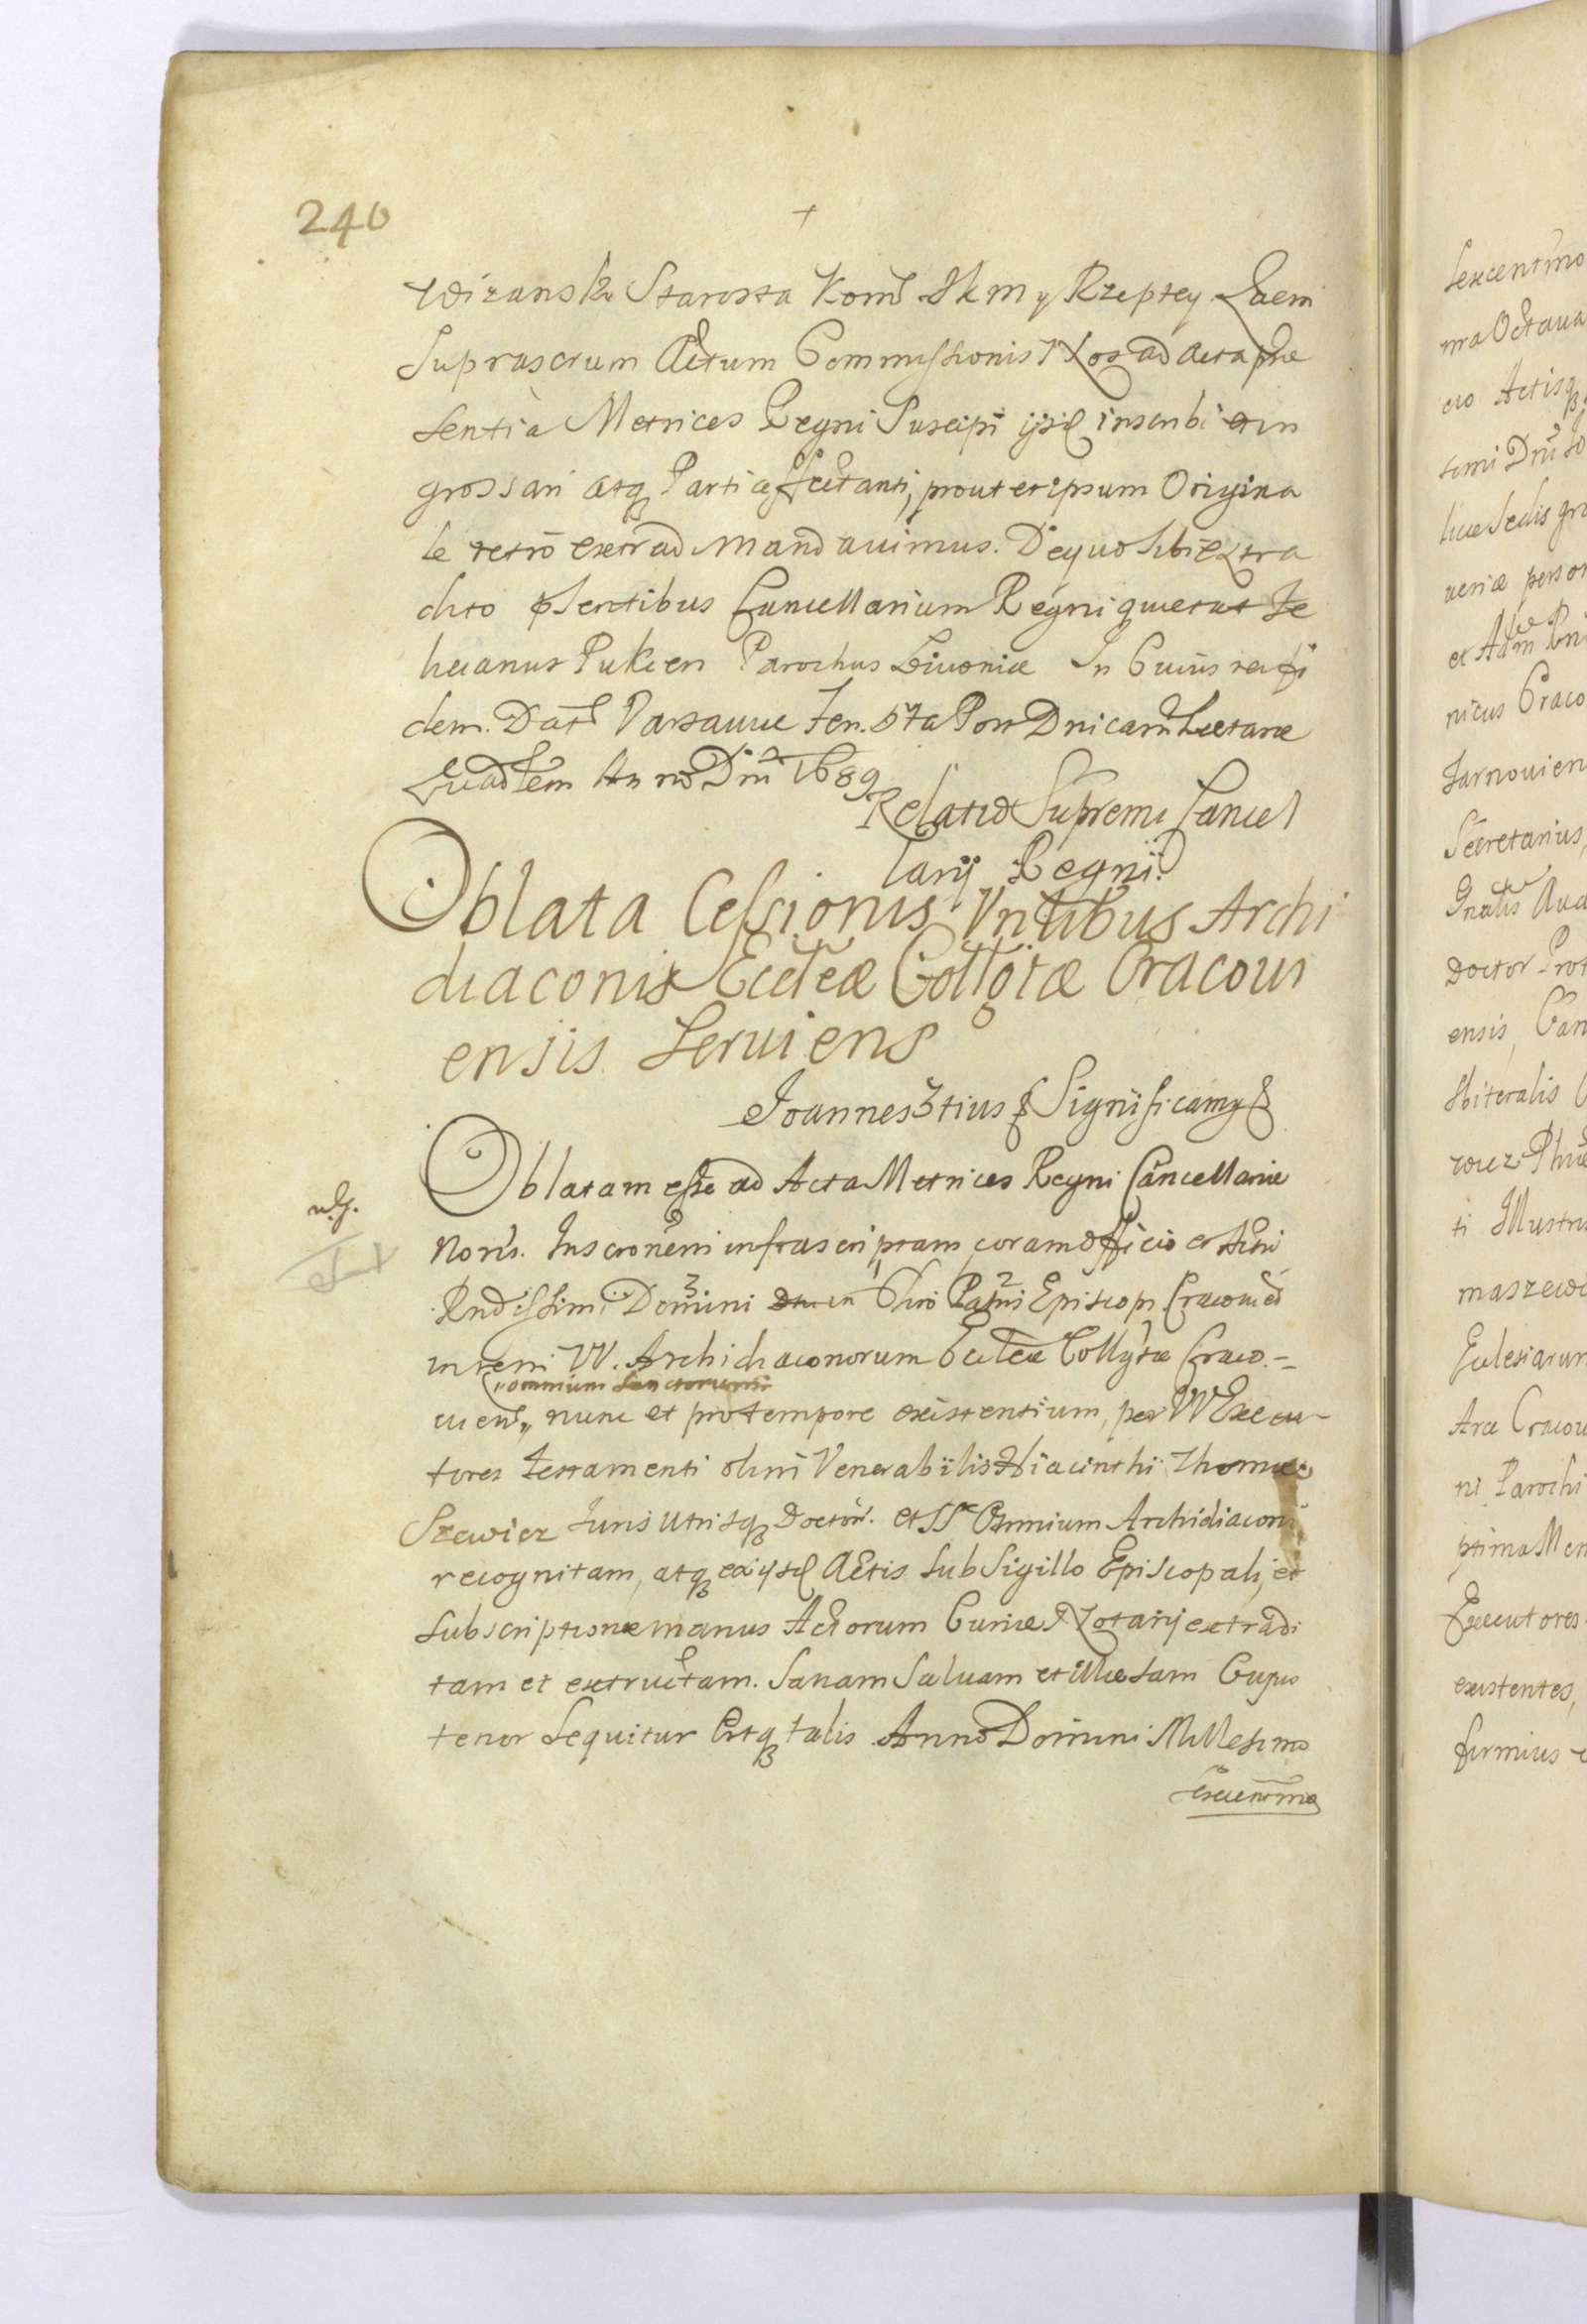 240
+
wizansko Starosta Komd Jkm y Rzeptey Quem
Suprascrum Actum Commissionis Nos ad acta prae
sentia Metrices Regni Suscipi ijsq inscribi et in
grossari atq Parti affectanti, prout et ipsum Origina
le retro extrad mandavimus. De quo sibi extra
dito pnsentibus Cancellarium Regni quietat Ste
hecanus Pukien Parochus Livoniae In Cuius rei fi
dem. Dat Varsaviae Fer. 5ta Post Dnicam Laetare
Quadlem Anno Dni 1689
Relatio Supremi Cancel
larij Regni.
Oblata Cessionis Vnlibus Archi
diaconis Eccleae Collgtae Cracovi
ensis Serviens
Joannes 3tius Significamy
Oblatam esse ad Acta Metrices Regni Cancellariae
Noris. Inscronem infrascriptam coram officio et Actis
Rndissimi Domini Epi Episcopi Cracovien
in rem VV. Archidiaconorum Eccleae Collgtae Craco.-
omnium Sanctorum
vien nunc et pro tempore existentium, per VV Execu-
tores testamenti olim Venerabilis Hiacinthi Thomae
Szewicz Iuris Utriusq Doctor. et SS Omnium Archidiaconi
recognitam, atq ex ijsd Actis sub Sigillo Episcopali, et
subscriptione manus Actorum Curiae Notarij extradi
tam et extructam. Sanam Salvam et illaesam Cujus
tenor sequitur Estq talis Anno Domini Millesimo
Sexcentmo
sexcentmo
ma Octava
cro Actisq
simi Dni
sedis
veriae person
et Adm
nicus Craco
Tarnovien
Secretarius,
Gnalis
Doctor Prot
ensis, Can
ti Illustris
maszewo
Ecclesiarum
Arce Cracov
ni Parochi
ptima Men
Executores
existentes,
firmius